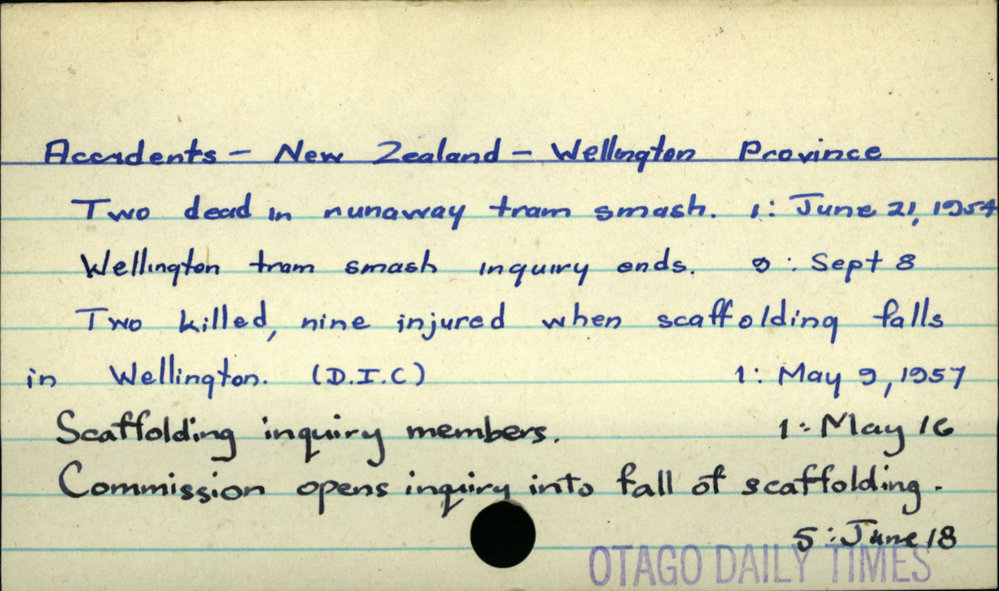 Accidents - New Zealand - Wellington Province
Two dead in runaway tram smash. 1: June 21, 1954
Wellington tram smash inquiry ends. 9: Sept 8
Two killed, nine injured when scaffolding falls
in Wellington. (D.I.C) 1: May 9, 1957
Scaffolding inquiry members. 1: May 16
Commission opens inquiry into fall of scaffolding.
5: June 18
OTAGO DAILY TIMES